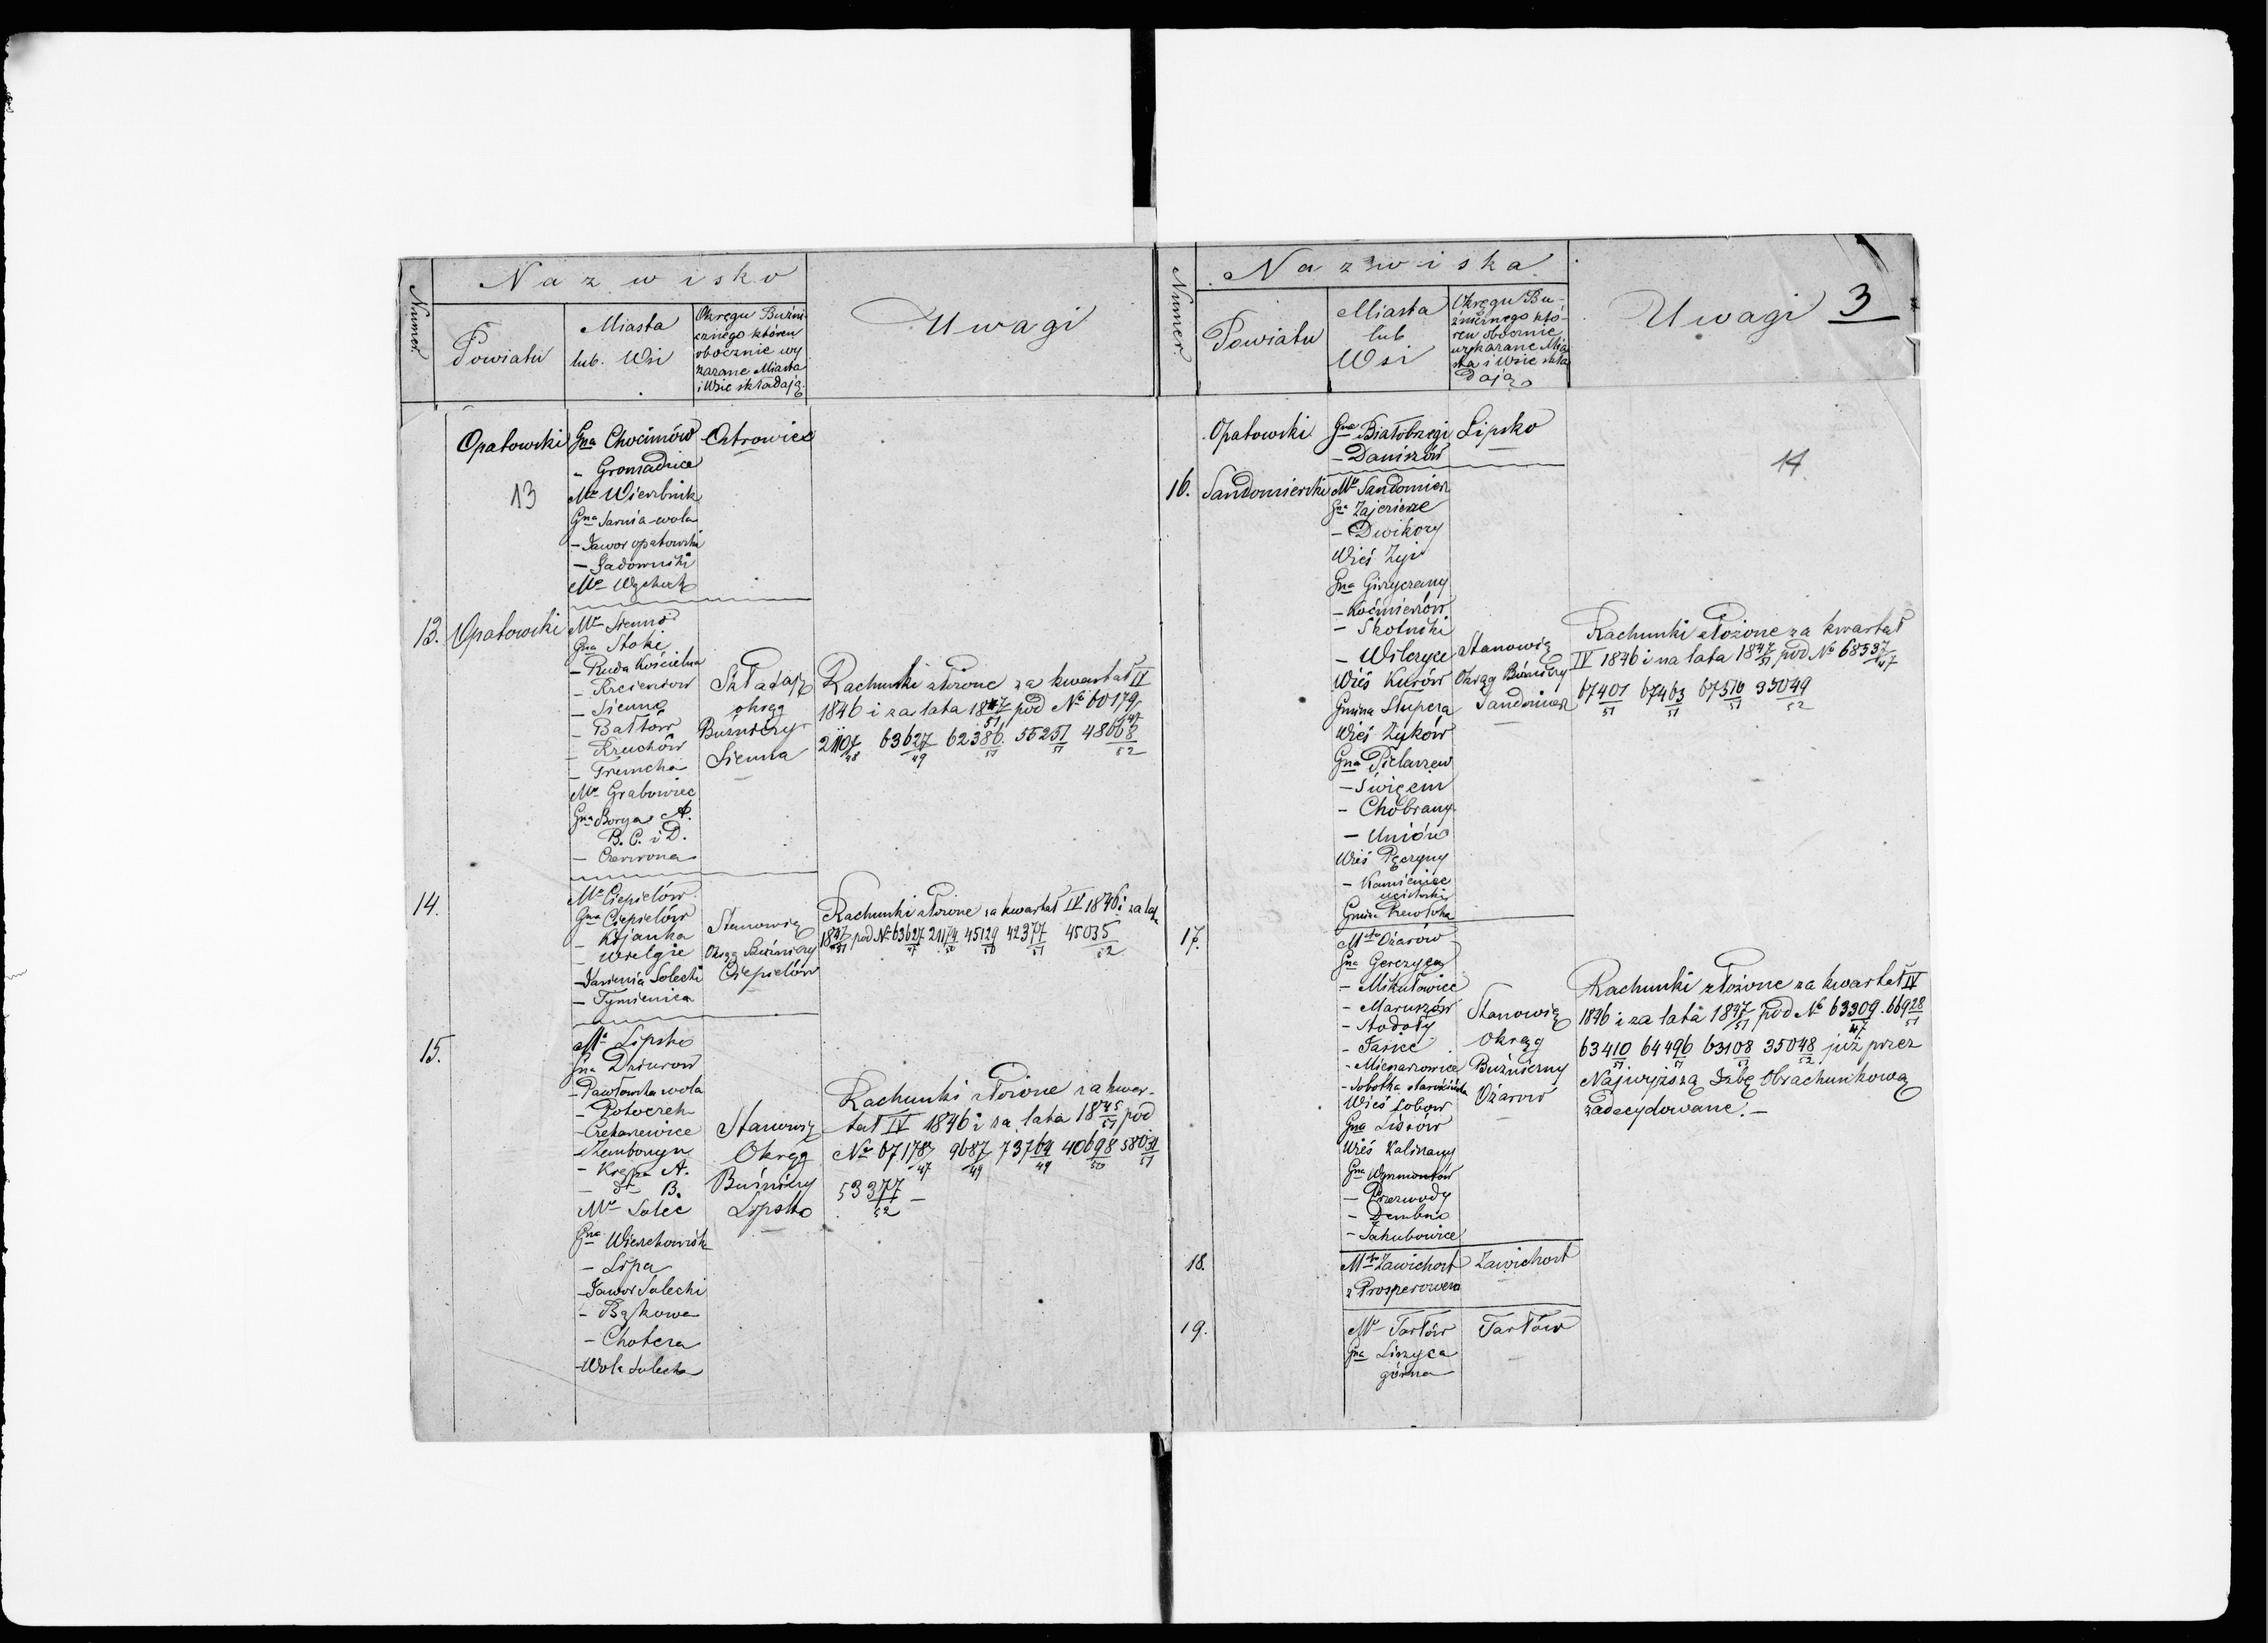 Numer
Nazwisko
Powiatu
Miasta
lub. Wsi
Okręgu Buźni-
cznego któren
obocznie wy
kazane Miasta
i Wsie składają.
Uwagi
Opatowski Gna Chocimów Ostrowiec
- Gromadzice
13
Mto Wierzbnik
Gna Tarnia-wola
- Jawor opatowski
- Sadowniki
Mto Wąchock
13. Opatowski
Mto Sienno
Gna Stoki
- Ruda Kościelna
- Krzciencow
- Sienno
- Bałtów
- Kruchów
- Tremcha
Mto Grabowiec
Gna Borya A.
B. C. i D.
- Czerwona
Składają
okręg
Buźniczy
Sienna
Rachunki złożone za kwartał IV
1846 i za lata 1847/51 pod No 60179/47
21107/48 63627/49 62386/51 55251/51 48668/52
14.
Mto Ciepielów
Gna Ciepielów
- Kijanka
- Wielgie
- Jasienia Solecki
- Tymienica
Stanowią
Okręg Buźniczy
Ciepielów
Rachunki złożone za kwartał IV 1846 i za lata
1847/51 pod No 63627/47 21174/50 45129/50 42377/51 45035/52
15.
Mto Lipsko
Gna Dziurow
- Pawłowska wola
- Potoczek
- Czekarzewice
- Zemborzyn
- Krępa A.
- dt B.
Mto Solec
Gna Wierzchowisk
- Lipa
- Jawor Solecki
- Bąkowa
- Chotcza
- Wola Solecka
Stanowią
Okręg
Buźniczy
Lipsko
Rachunki złożone za kwar-
tał IV 1846 i za lata 1845/51 pod
No 67178/47 9687/49 73764/49 40698/50 58031/51
53377/52 -
Numer.
Nazwiska
Powiatu
Miasta
lub
Wsi
Okręgu Bu-
źnicznego któ-
ren obocznie
wykazane Mia
sta i Wsie skła
dają
Uwagi 3
Opatowski Gna Białobrzegi Lipsko
- Daniszów
14
16. Sandomierski Mto Sandomierz
Gna Zajezierze
- Dwikozy
Wieś Żyć
Gna Gierzyczany
- Koćmierzów
- Skotniki
- Wilczyce
Wieś Kurów
Gmina Słupcza
Wieś Żyków
Gna Pielaszew
- Święcin
- Chobrany
- Uniów
Wieś Pęczyny
- Kamieniec
Gmina Przewłoka
Stanowią
Okręg Buźniczy
Sandomierz
Rachunki złożone za kwartał
IV 1846 i na lata 1847/51 pod No 68337/47
67401/51 67463/51 67510/51 35049/52
17.
Mto Ożarów
Gna Gerczyca
- Mikułowice
- Maruszów
- Stodoły
- Jasice
- Mienarzowice
- Sobotka starościńska
Wieś Łobow
Gna Lisów
Wieś Kaliszany
Gna Wyszmontów
- Przezwody
- Dembno
- Jakubowice
Stanowią
Okręg
Buźniczny
Ożarów
Rachunki złożone za kwartał IV
1846 i za lata 1847/51 pod No 63309/47. 66928/51
63410/51 64496/51 63108/51 35048/52 już przez
Najwyższą Izbę Obrachunkową
zadecydowane. -
18.
Mto Zawichost Zawichost
z Prosperowem
19.
Mto Tarłów Tarłów
Gna Linzyca
górna